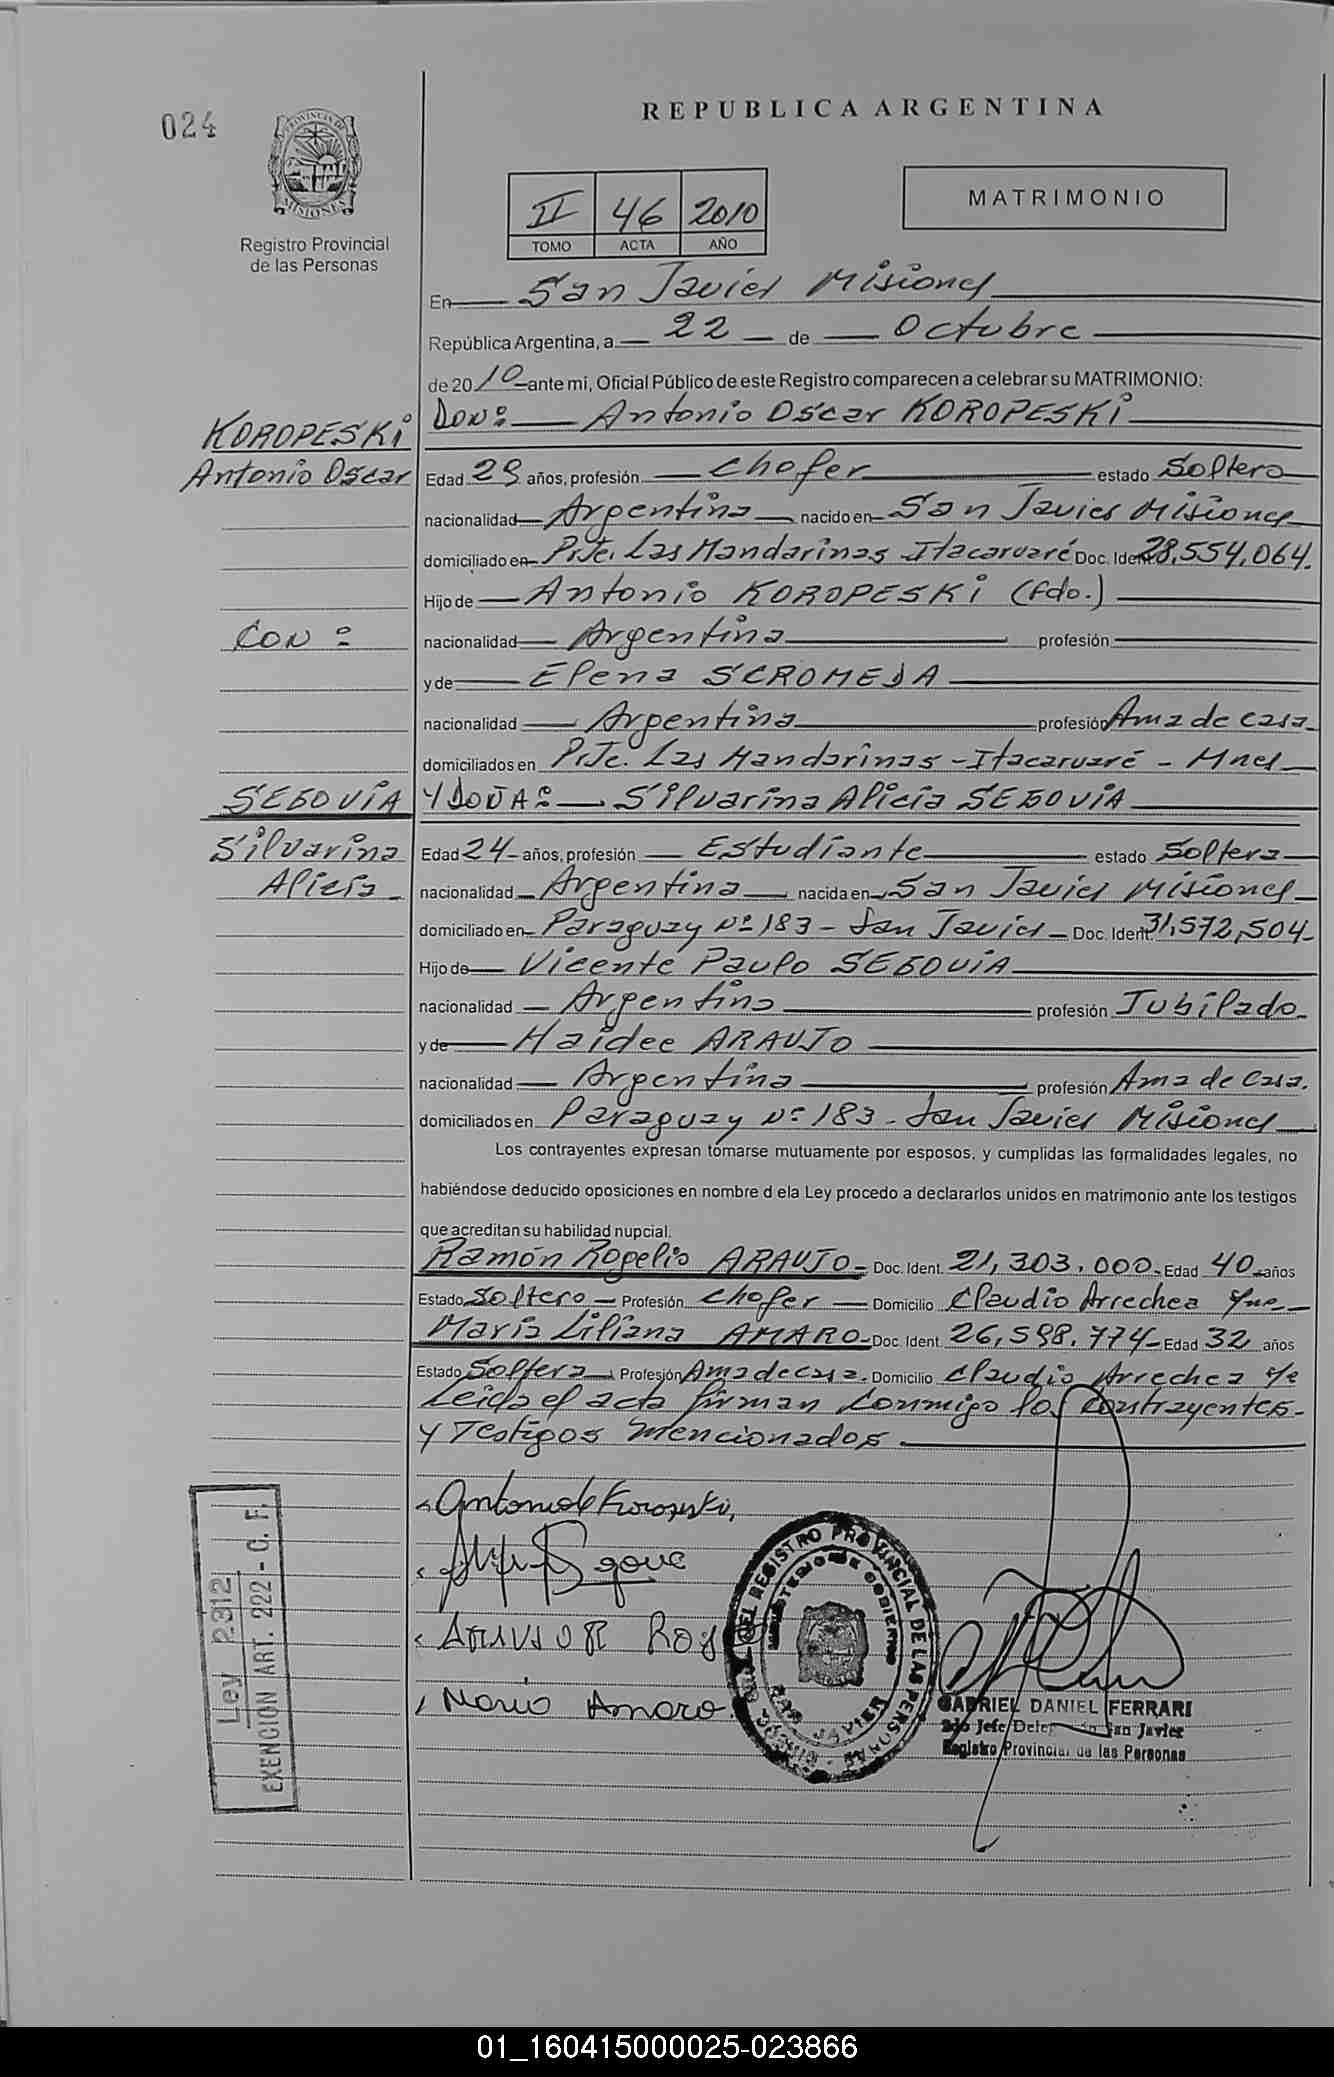 024
REPUBLICA ARGENTINA
PROVINCIA DE
MISIONES
Registro Provincial
de las Personas
II 46 2010
TOMO ACTA AÑO
MATRIMONIO
En San Javier Misiones
República Argentina, a 22 de Octubre
de 2010 ante mi, Oficial Público de este Registro comparecen a celebrar su MATRIMONIO:
KOROPESKi
Antonio Oscar
CON:
SEGOVIA
Silvarina
Alicia
DON: Antonio Oscar KOROPESKi
Edad 29 años, profesión Chofer estado Soltero
nacionalidad Argentina nacido en San Javier Misiones
domiciliado en Pje. Las Mandarinas Itacaruaré Doc. Ident. 28,554,064.
Hijo de Antonio KOROPESKi (fdo.)
nacionalidad Argentina profesión
y de Elena SCROMEDA
nacionalidad Argentina profesión Ama de casa
domiciliados en Pje. Las Mandarinas - Itacaruaré - Mnes
Y DOÑA: Silvarina Alicia SEGOVIA
Edad 24 años, profesión Estudiante estado Soltera
nacionalidad Argentina nacida en San Javier Misiones
domiciliado en Paraguay Nº 183 - San Javier Doc. Ident. 31,572,504
Hijo de Vicente Paulo SEGOVIA
nacionalidad Argentina profesión Jubilado
y de Haidee ARAUJO
nacionalidad Argentina profesión Ama de Casa.
domiciliados en Paraguay Nº 183 - San Javier Misiones
Los contrayentes expresan tomarse mutuamente por esposos, y cumplidas las formalidades legales, no
habiéndose deducido oposiciones en nombre d ela Ley procedo a declararlos unidos en matrimonio ante los testigos
que acreditan su habilidad nupcial.
Ramón Rogelio ARAUJO Doc. Ident. 21,303.000 Edad 40 años
Estado Soltero Profesión Chofer Domicilio Claudio Arrechea
María Liliana AMARO Doc. Ident. 26,598.774 Edad 32 años
Estado Soltera Profesión Ama de casa. Domicilio Claudio Arrechea
Leida el acta firman Conmigo los Contrayentes
y Testigos mencionados
Ley 2312
EXENCION ART. 222 - C. F.
REGISTRO PROVINCIAL DE LAS PERSONAS
MINISTERIO DE GOBIERNO
SAN JAVIER
Maria Amaro
GABRIEL DANIEL FERRARI
2do Jefe Delegación San Javier
Registro Provincial de las Personas
01_160415000025-023866